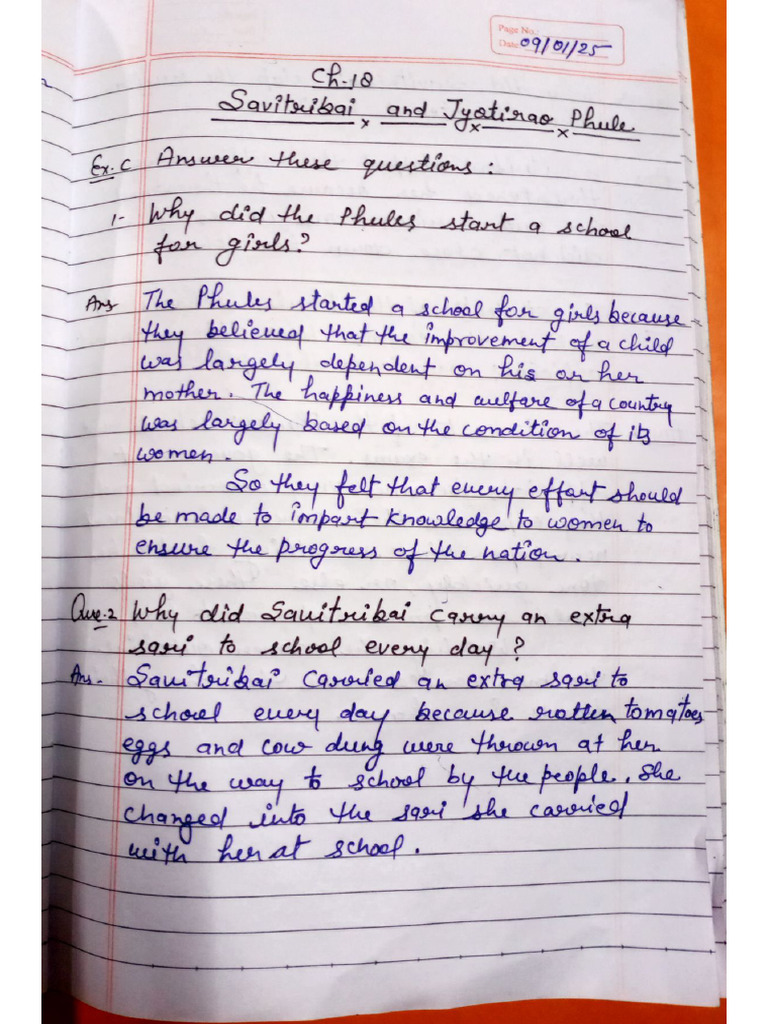 Page No.
Date 09/01/25
Ch-18
Savitribai and Jyotirao Phule
Ex.C Answer these questions :
1- Why did the Phules start a school
for girls?
Ans The Phules started a school for girls because
they believed that the improvement of a child
was largely dependent on his or her
mother. The happiness and welfare of a country
was largely based on the condition of its
women.
So they felt that every effort should
be made to impart knowledge to women to
ensure the progress of the nation.
Que.2 Why did Savitribai carry an extra
sari to school every day?
Ans. Savitribai carried an extra sari to
school every day because rotten tomatoes
eggs and cow dung were thrown at her
on the way to school by the people. She
changed into the sari she carried
with her at school.